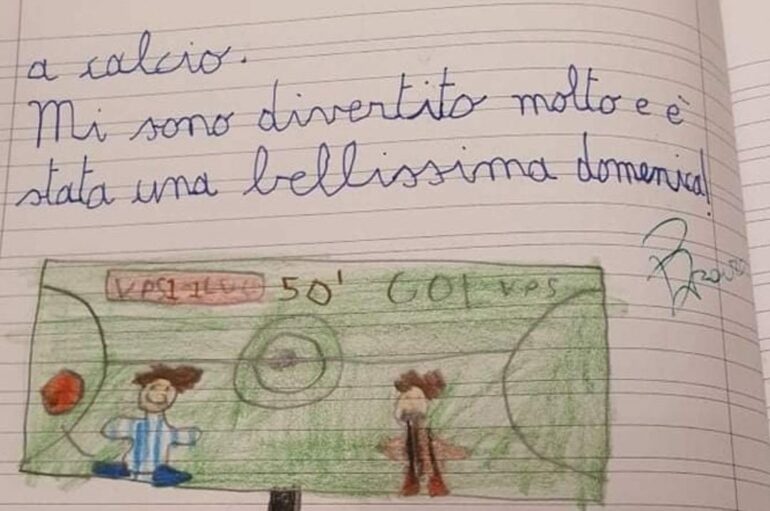 a calcio.
Mi sono divertito molto e è
stata una bellissima domenica!
Bravo
50' GOL VPS